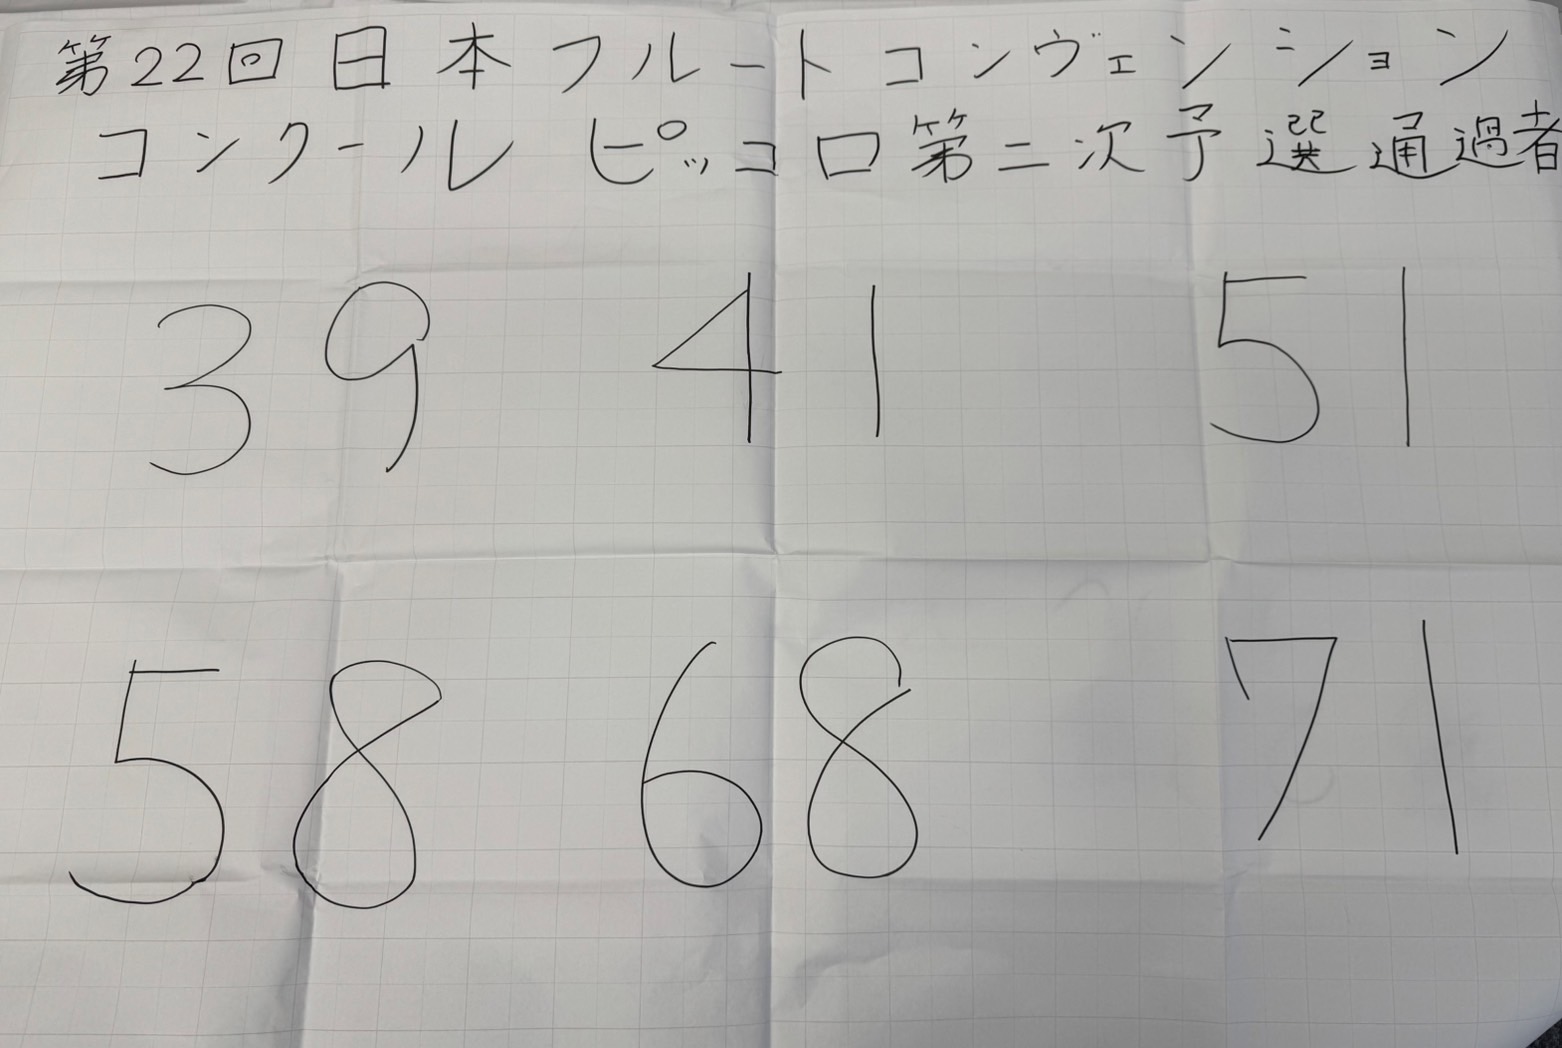 第22回 日本フルートコンヴェンション
コンクール ピッコロ第二次予選通過者
39 41 51
58 68 71